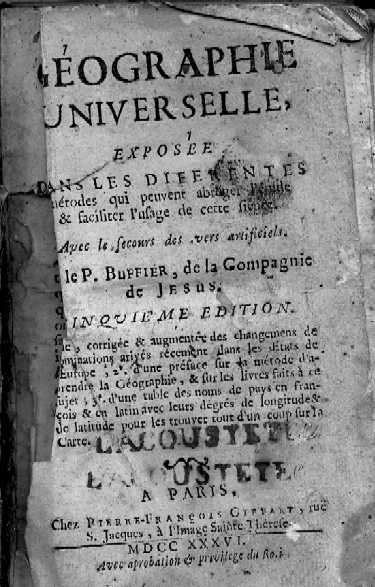 GÉOGRAPHIE
UNIVERSELLE,
EXPOSÉE
DANS LES DIFERENTES
métodes qui peuvent abréger l'étude
& faciliter l'usage de cette sience.
Avec le secours des vers artificiels.
le P. BUFFIER, de la Compagnie
de JESUS.
INQUIEME EDITION.
corrigée & augmentée des changemens de
ominations arivés récement dans les états de
Europe, 2°. d'une préface sur la métode d'a-
prendre la Géographie, & sur les livres faits à ce
sujet, 3°. d'une table des noms de pays en fran-
çois & en latin avec leurs dégrés de longitude &
de latitude pour les trouver tout d'un coup sur la
Carte.
LACOUSTETE
LACOUSTETE
A PARIS,
Chez PIERRE-FRANÇOIS GIFFART, rue
S. Jacques, à l'Image Sainte Thérese.
MDCC XXXVI.
Avec aprobation & privilege du Roi.